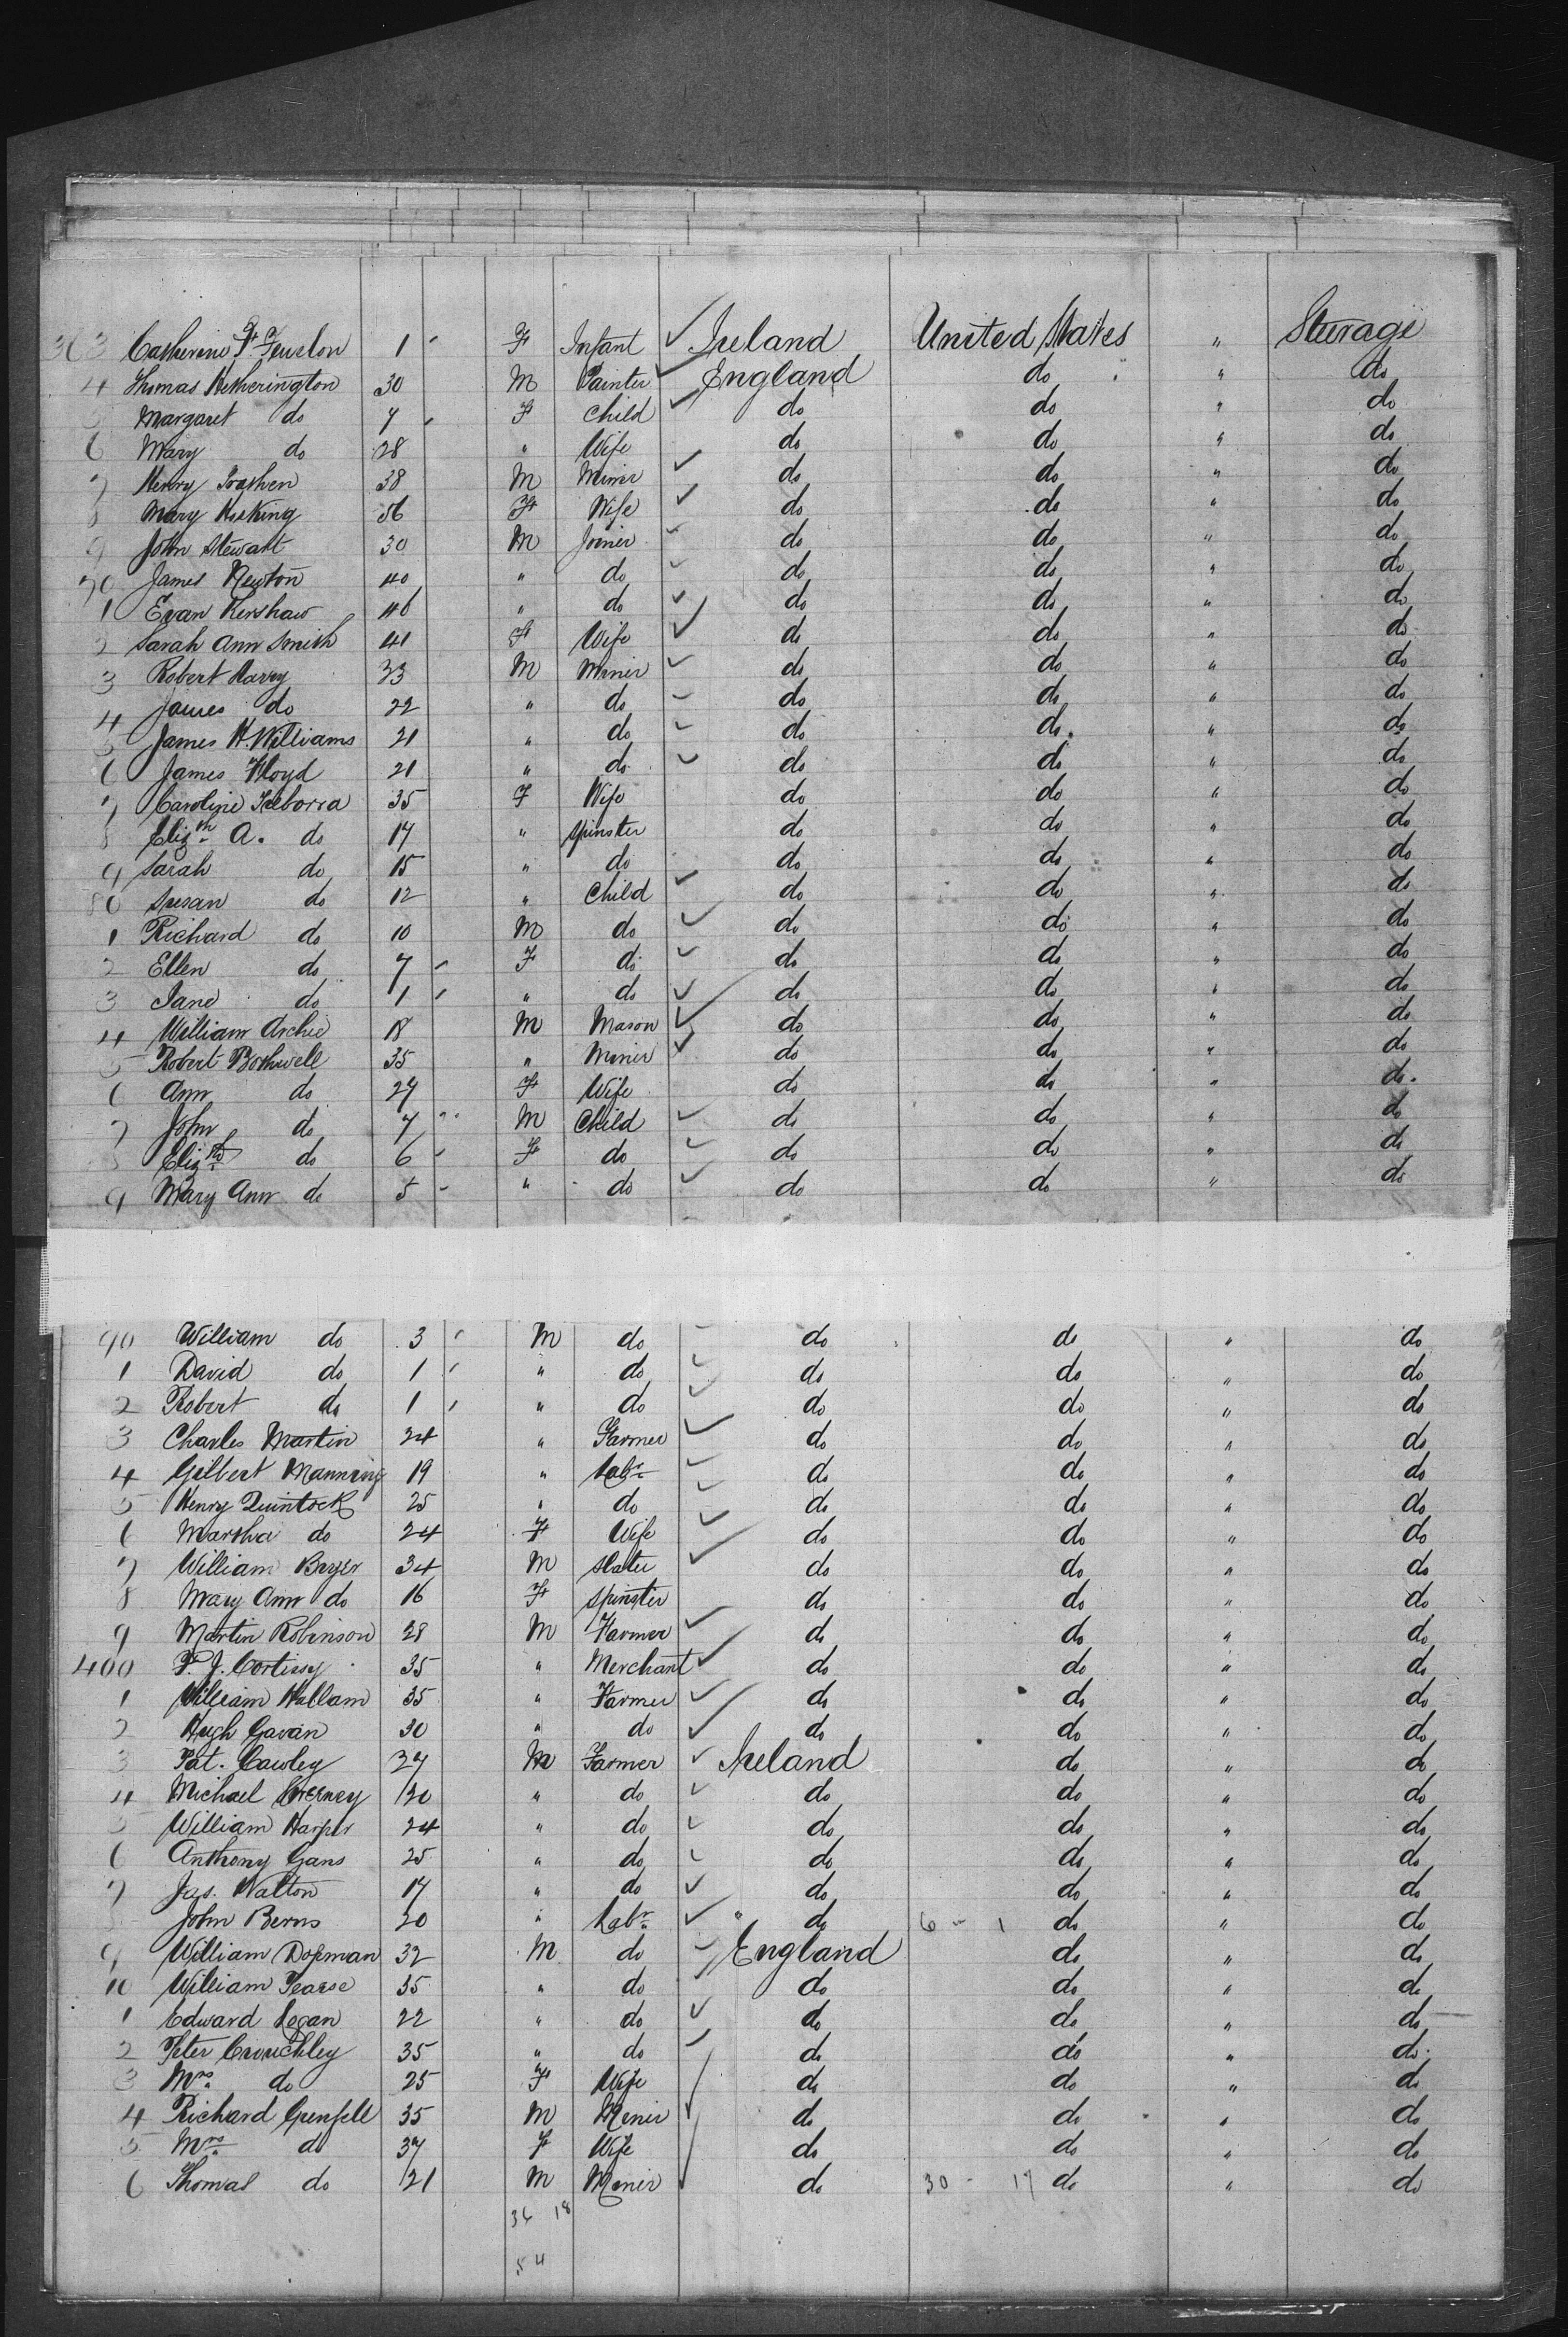 363 Catherine F. Feuston 1 F Infant Ireland United States " Sturage
4 Thomas Hetherington 30 M Painter England do " do
Margaret do 7 F Child do do " do
6 Mary do 28 " Wife do do " do
7 Henry 38 M Miner do do " do
8 Mary Hicking 56 F Wife do do " do
9 John Stewart 30 M Joiner do do " do
70 James Newton 40 " do do do " do
1 Evan Kershaw 46 " do do do " do
2 Sarah Ann Smith 41 F Wife do do " do
3 Robert Harry 23 M Miner do do " do
4 James do 22 " do do do " do
5 James H. Williams 21 " do do do " do
6 James Floyd 21 " do do do " do
7 Caroline Treborra 35 F Wife do do " do
8 Elizth A. do 17 " Spinster do do " do
9 Sarah do 15 " do do do " do
80 Susan do 12 " Child do do " do
1 Richard do 10 M do do do " do
2 Ellen do 7 F do do do " do
3 Jane do 1 " do do do " do
4 William Archie 18 M Mason do do " do
5 Robert Bothwell 35 " Miner do do " do
6 Ann do 27 F Wife do do " do
7 John do 7 M Child do do " do
8 Elizth do 6 F do do do " do
9 Mary Ann do 5 " do do do " do
90 William do 3 M do do do " do
1 David do 1 " do do do " do
2 Robert do 1 " do do do " do
3 Charles Martin 24 " Farmer do do " do
4 Gilbert Manning 19 " Labr do do " do
5 Henry Quintock 25 " do do do " do
6 Martha do 24 F Wife do do " do
7 William Bryer 34 M Slater do do " do
8 Mary Ann do 16 F Spinster do do " do
9 Martin Robinson 28 M Farmer do do " do
400 P. J. Cortissy 35 " Merchant do do " do
1 William Hallam 35 " Farmer do do " do
2 Hugh Gavan 30 " do do do " do
3 Pat. Cawley 27 M Farmer Ireland do " do
4 Michael 20 " do do do " do
5 William Harper 24 " do do do " do
6 Anthony Gans 25 " do do do " do
7 Jas. Walton 17 " do do do " do
John Berns 20 " Labr " do 6 - 1 do " do
9 William Dopman 32 M do England do " do
10 William Pearse 35 " do do do " do
1 Edward Logan 22 " do do do " do
2 Peter Crouchley 35 " do do do " do
3 Mrs do 25 F Wife do do " do
4 Richard Grenfell 35 M Miner do do " do
5 Mrs do 37 F Wife do do " do
6 Thomas do 21 M Miner do 30 - 17 do " do
36 18
54